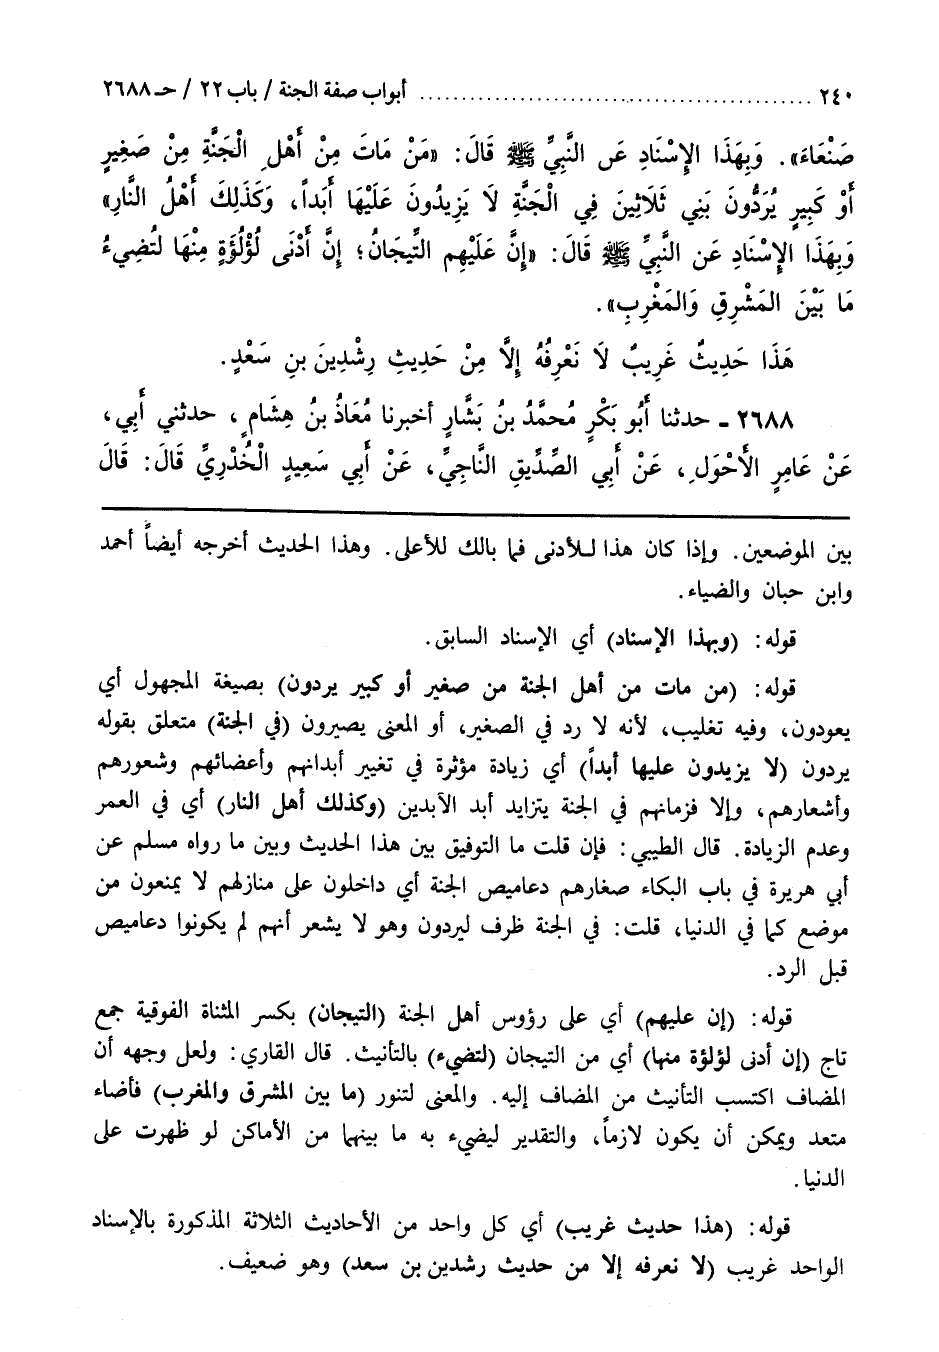 ٢٤٠ ........................................................ أبواب صفة الجنة / باب ٢٢ / حـ ٢٦٨٨
صَنْعَاءَ». وَبِهَذَا الإِسْنَادِ عَنِ النَّبِيِّ ﷺ قَالَ: «مَنْ مَاتَ مِنْ أَهْلِ الْجَنَّةِ مِنْ صَغِيرٍ
أَوْ كَبِيرٍ يُرَدُّونَ بَنِي ثَلَاثِينَ فِي الْجَنَّةِ لَا يَزِيدُونَ عَلَيْهَا أَبَداً، وَكَذَلِكَ أَهْلُ النَّارِ»
وَبِهَذَا الإِسْنَادِ عَن النَّبِيِّ ﷺ قَالَ: «إِنَّ عَلَيْهِم التِّيجَانُ؛ إِنَّ أَدْنَى لُؤْلُؤَةٍ مِنْهَا لَتُضِيءُ
مَا بَيْنَ المَشْرِقِ وَالمَغْرِبِ».
هَذَا حَدِيثٌ غَرِيبٌ لَا نَعْرِفُهُ إِلَّا مِنْ حَدِيثِ رِشْدِينَ بنِ سَعْدٍ.
٢٦٨٨ ـ حدثنا أَبُو بَكْرٍ مُحمَّدُ بنُ بَشَّارٍ أخبرنا مُعَاذُ بنُ هِشَامٍ، حدثني أَبِي،
عَنْ عَامِرٍ الأَحْوَلِ، عَنْ أَبِي الصِّدِّيقِ النَّاجِيِّ، عَنْ أَبِي سَعِيدٍ الْخُدْرِيِّ قَالَ: قَالَ
بين الموضعين. وإذا كان هذا للأدنى فما بالك للأعلى. وهذا الحديث أخرجه أيضاً أحمد
وابن حبان والضياء.
قوله: (وبهذا الإسناد) أي الإسناد السابق.
قوله: (من مات من أهل الجنة من صغير أو كبير يردون) بصيغة المجهول أي
يعودون، وفيه تغليب، لأنه لا رد في الصغير، أو المعنى يصيرون (في الجنة) متعلق بقوله
يردون (لا يزيدون عليها أبداً) أي زيادة مؤثرة في تغيير أبدانهم وأعضائهم وشعورهم
وأشعارهم، وإلا فزمانهم في الجنة يتزايد أبد الآبدين (وكذلك أهل النار) أي في العمر
وعدم الزيادة. قال الطيبي: فإن قلت ما التوفيق بين هذا الحديث وبين ما رواه مسلم عن
أبي هريرة في باب البكاء صغارهم دعاميص الجنة أي داخلون على منازلهم لا يمنعون من
موضع كما في الدنيا، قلت: في الجنة ظرف ليردون وهو لا يشعر أنهم لم يكونوا دعاميص
قبل الرد.
قوله: (إن عليهم) أي على رؤوس أهل الجنة (التيجان) بكسر المثناة الفوقية جمع
تاج (إن أدنى لؤلؤة منها) أي من التيجان (لتضيء) بالتأنيث. قال القاري: ولعل وجهه أن
المضاف اكتسب التأنيث من المضاف إليه. والمعنى لتنور (ما بين المشرق والمغرب) فأضاء
متعد ويمكن أن يكون لازماً، والتقدير ليضيء به ما بينهما من الأماكن لو ظهرت على
الدنيا.
قوله: (هذا حديث غريب) أي كل واحد من الأحاديث الثلاثة المذكورة بالإسناد
الواحد غريب (لا نعرفه إلا من حديث رشدين بن سعد) وهو ضعيف.